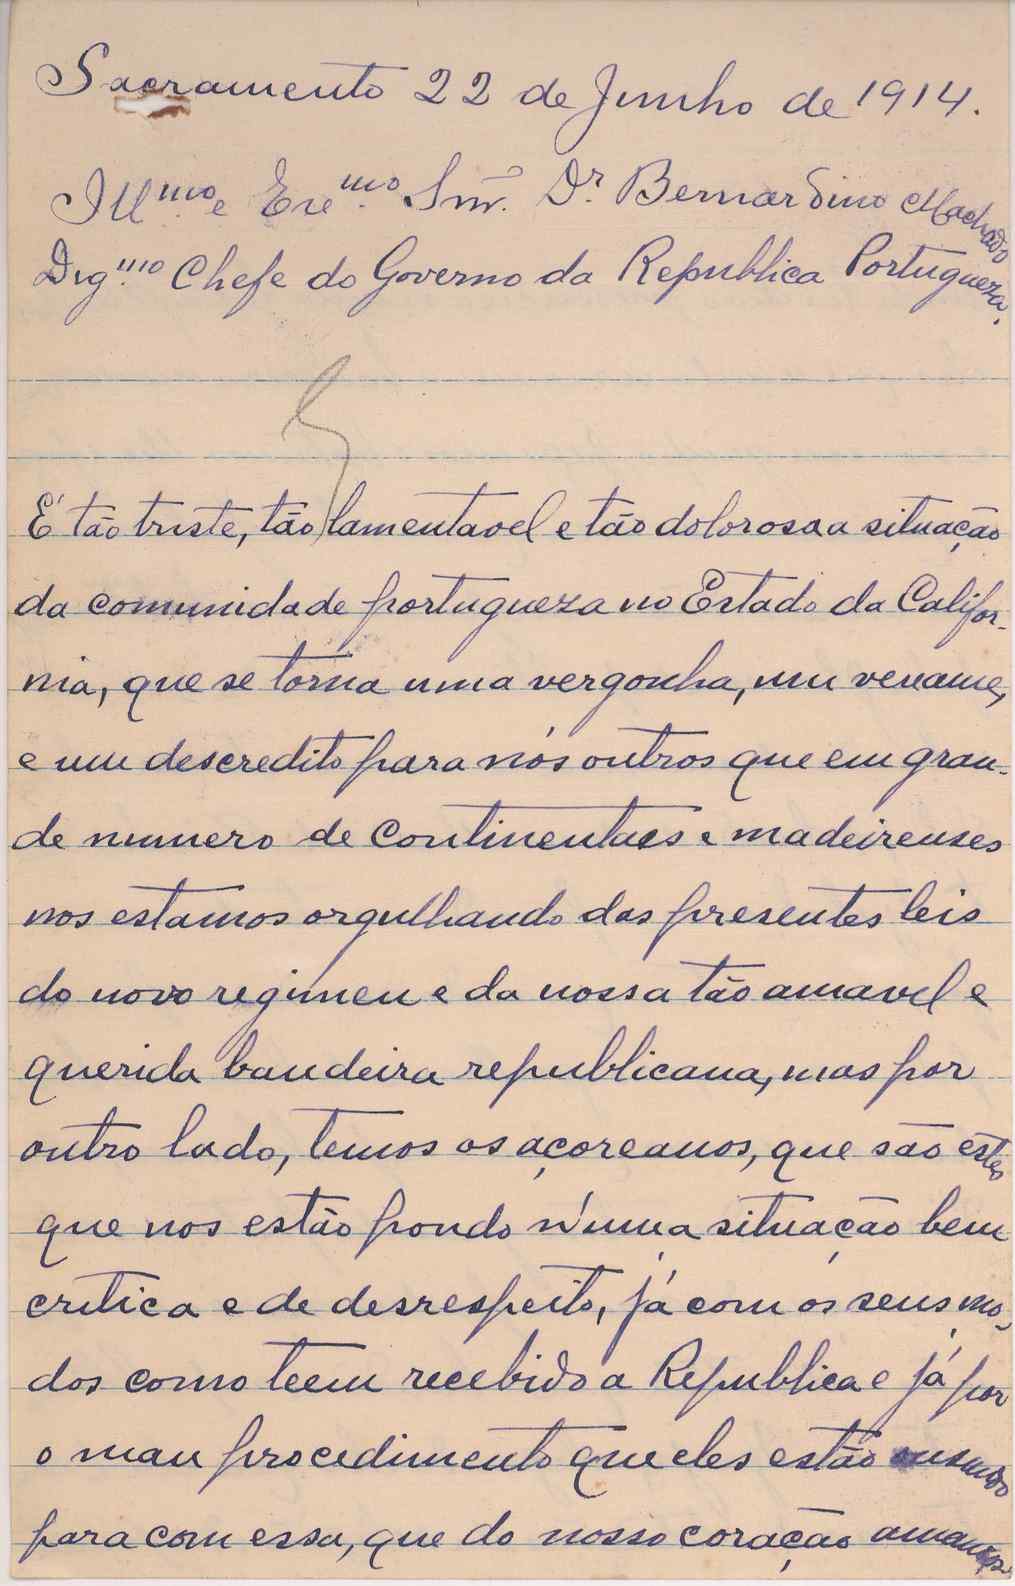 Sacramento 22 de Junho de 1914.
Ill.mo e Exe.mo Snr. Dr. Bernardino Machado
Dig.mo Chefe do Governo da Republica Portugueza.
É tão triste, tão lamentavel e tão dolorosa a situação
da comunidade portugueza no Estado da Califor-
nia, que se torna uma vergonha, um vexame,
e um descredito para nós outros que em gran-
de numero de Continentaes e madeirenses
nos estamos orgulhando das presentes leis
do novo regimen e da nossa tão amavel e
querida bandeira republicana, mas por
outro lado, temos os açoreanos, que são estes
que nos estão pondo n'uma situação bem
critica e de desrespeito, já com os seus mo-
dos como teem recebido a Republica e já por
o mau procedimento que eles estão usando
para com essa, que do nosso coração amamos